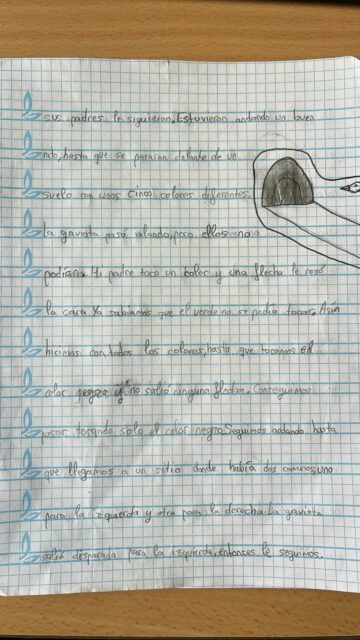 sus padres le siguieron. Estuvieron andando un buen
rato, hasta que se pararon delante de un
suelo con unos cinco colores diferentes.
La gaviota pasó volando, pero ellos no
podían. Mi padre tocó un color y una flecha le rozó
la cara. Ya sabíamos que el verde no se podía tocar. Asín
hicimos con todos los colores, hasta que tocamos el
color negro y no salió ninguna flecha. Conseguimos
pasar, tocando solo el color negro. Seguimos andando hasta
que llegamos a un sitio donde había dos caminos, uno
para la izquierda y otro para la derecha. La gaviota
salió disparada para la izquierda, entonces le seguimos.